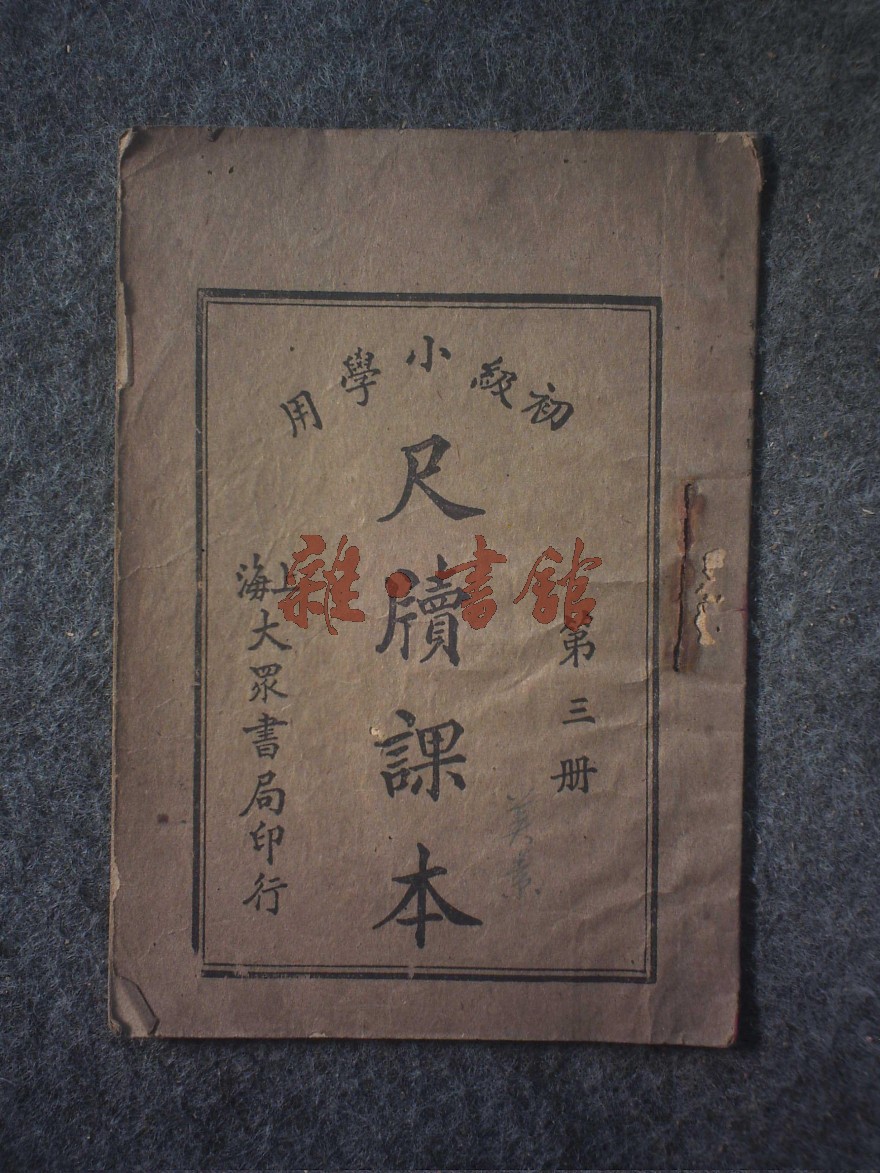 初級小學用
尺牘課本
第三册
上海大眾書局印行
雜·書館